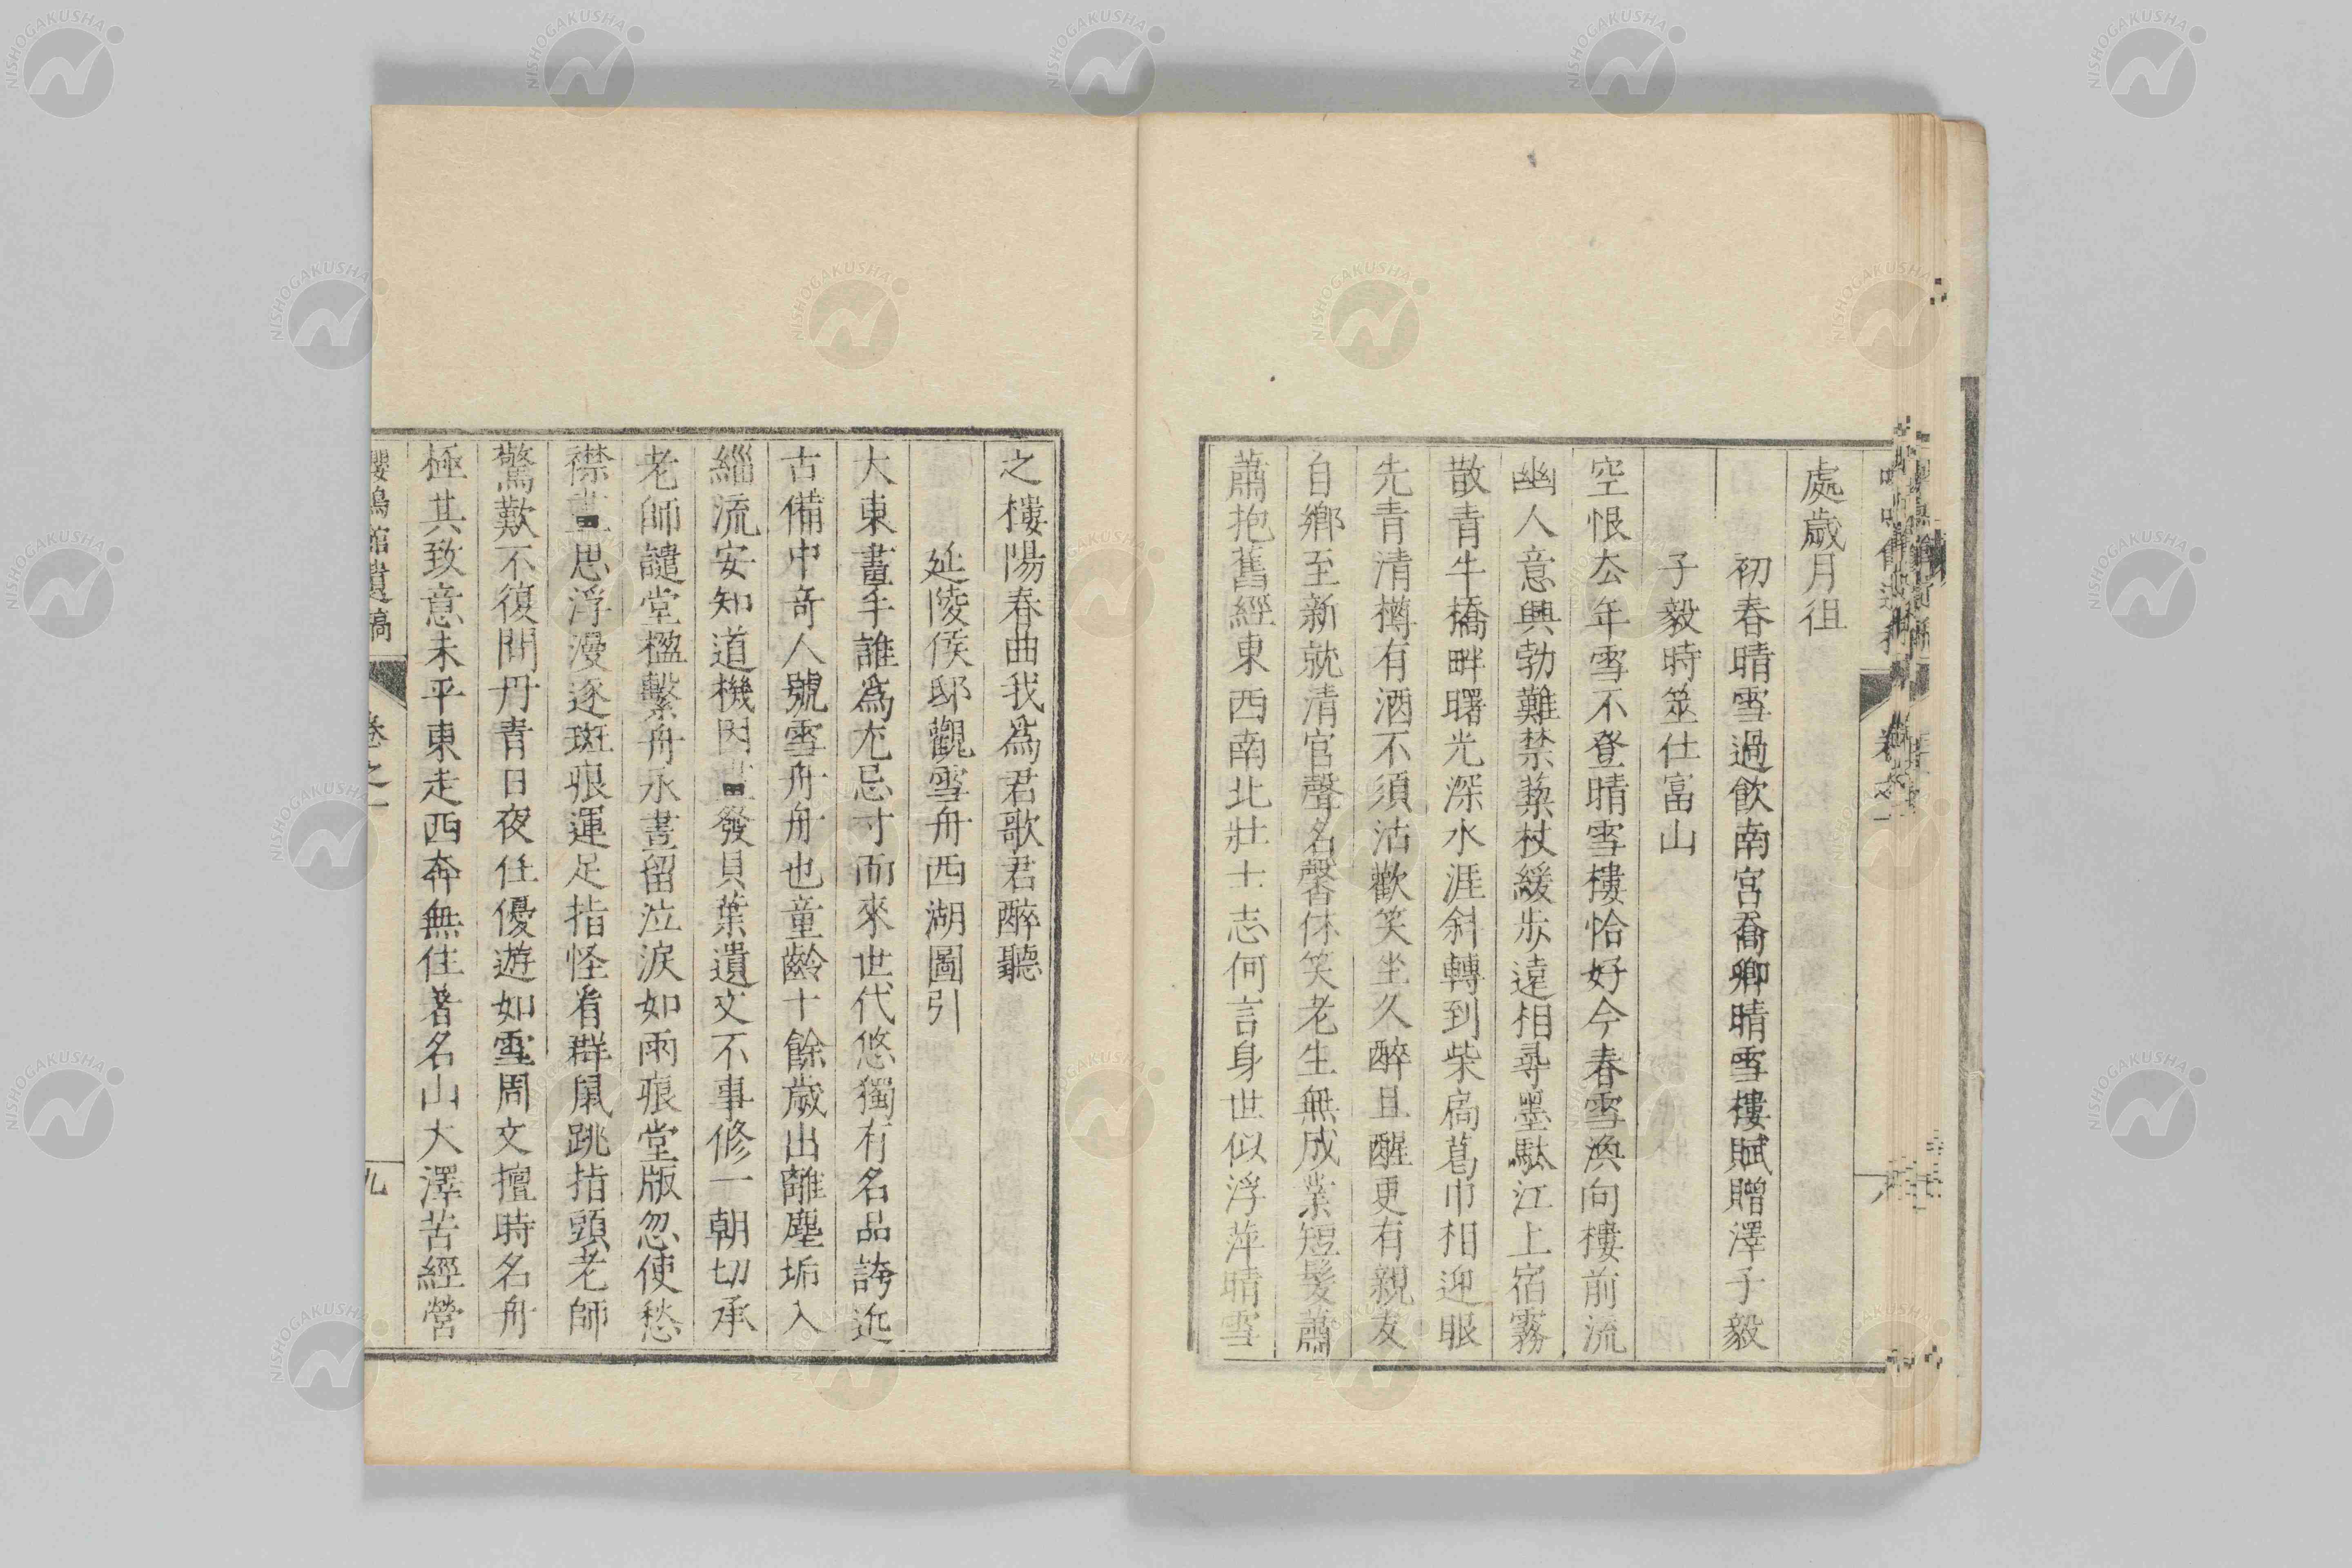 處歲月徂
初春晴雪過飲南宮喬卿晴雪樓賦贈澤子毅
子毅時筮仕富山
空恨去年雪不登晴雪樓恰好今春雪渙向樓前流
幽人意興勃難禁藜杖緩步遠相尋墨馱江上宿霧
散青牛橋畔曙光深水涯斜轉到柴扃葛巾相迎眼
先青清樽有酒不須沽歡笑坐久醉且醒更有親友
自鄉至新就清官聲名馨休笑老生無成業短髮蕭
蕭抱舊經東西南北壯士志何言身世似浮萍晴雪
之樓陽春曲我為君歌君醉聽
延陵侯邸觀雪舟西湖圖引
大東畫手誰為尤忌寸而來世代悠獨有名品誇近
古備中奇人號雪舟舟也童齡十餘歲出離塵垢入
緇流安知道機因畫發貝葉遺文不事修一朝切承
老師譴堂楹繫舟永晝留泣淚如雨痕堂版忽使愁
襟畫思浮漫逐斑痕運足指怪看群鼠跳指頭老師
驚歎不復問丹青日夜任優遊如雪周文擅時名舟
極其致意未平東走西奔無住著名山大澤苦經營
嚶鳴館遺稿 卷之一 九
NISHOGAKUSHA